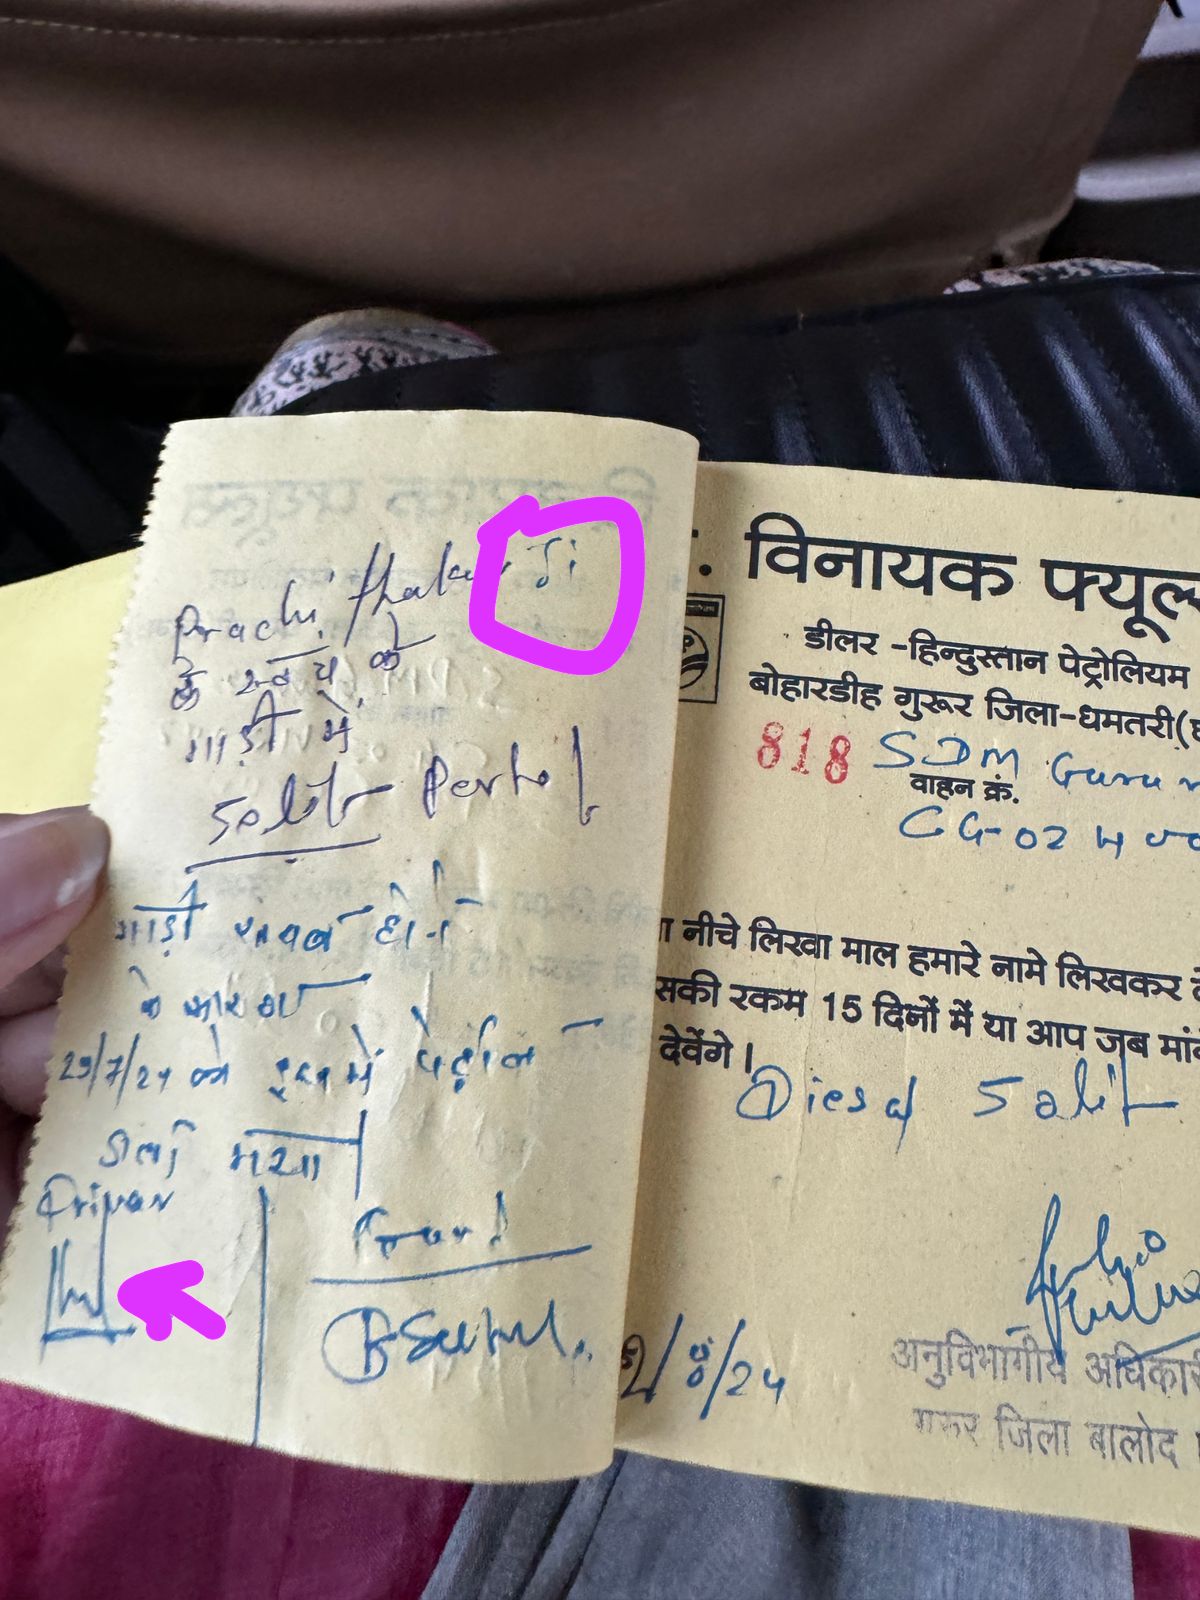 Prachi thakur Ji
के स्वयं के
गाड़ी में
5 olit Pertol
गाड़ी खराब होने
के कारण
29/7/24 को इसमें पेट्रोल
डाला गया
Driver
Guard
. विनायक फ्यूल्स
डीलर -हिन्दुस्तान पेट्रोलियम
बोहारडीह गुरूर जिला-धमतरी(छ
818 SDM Gurur
वाहन क्रं.
CG-02
नीचे लिखा माल हमारे नामे लिखकर
सकी रकम 15 दिनों में या आप जब मांगे
देवेंगे।
Diesel 50 lit
/24
अनुविभागीय अधिकारी
गुरूर जिला बालोद